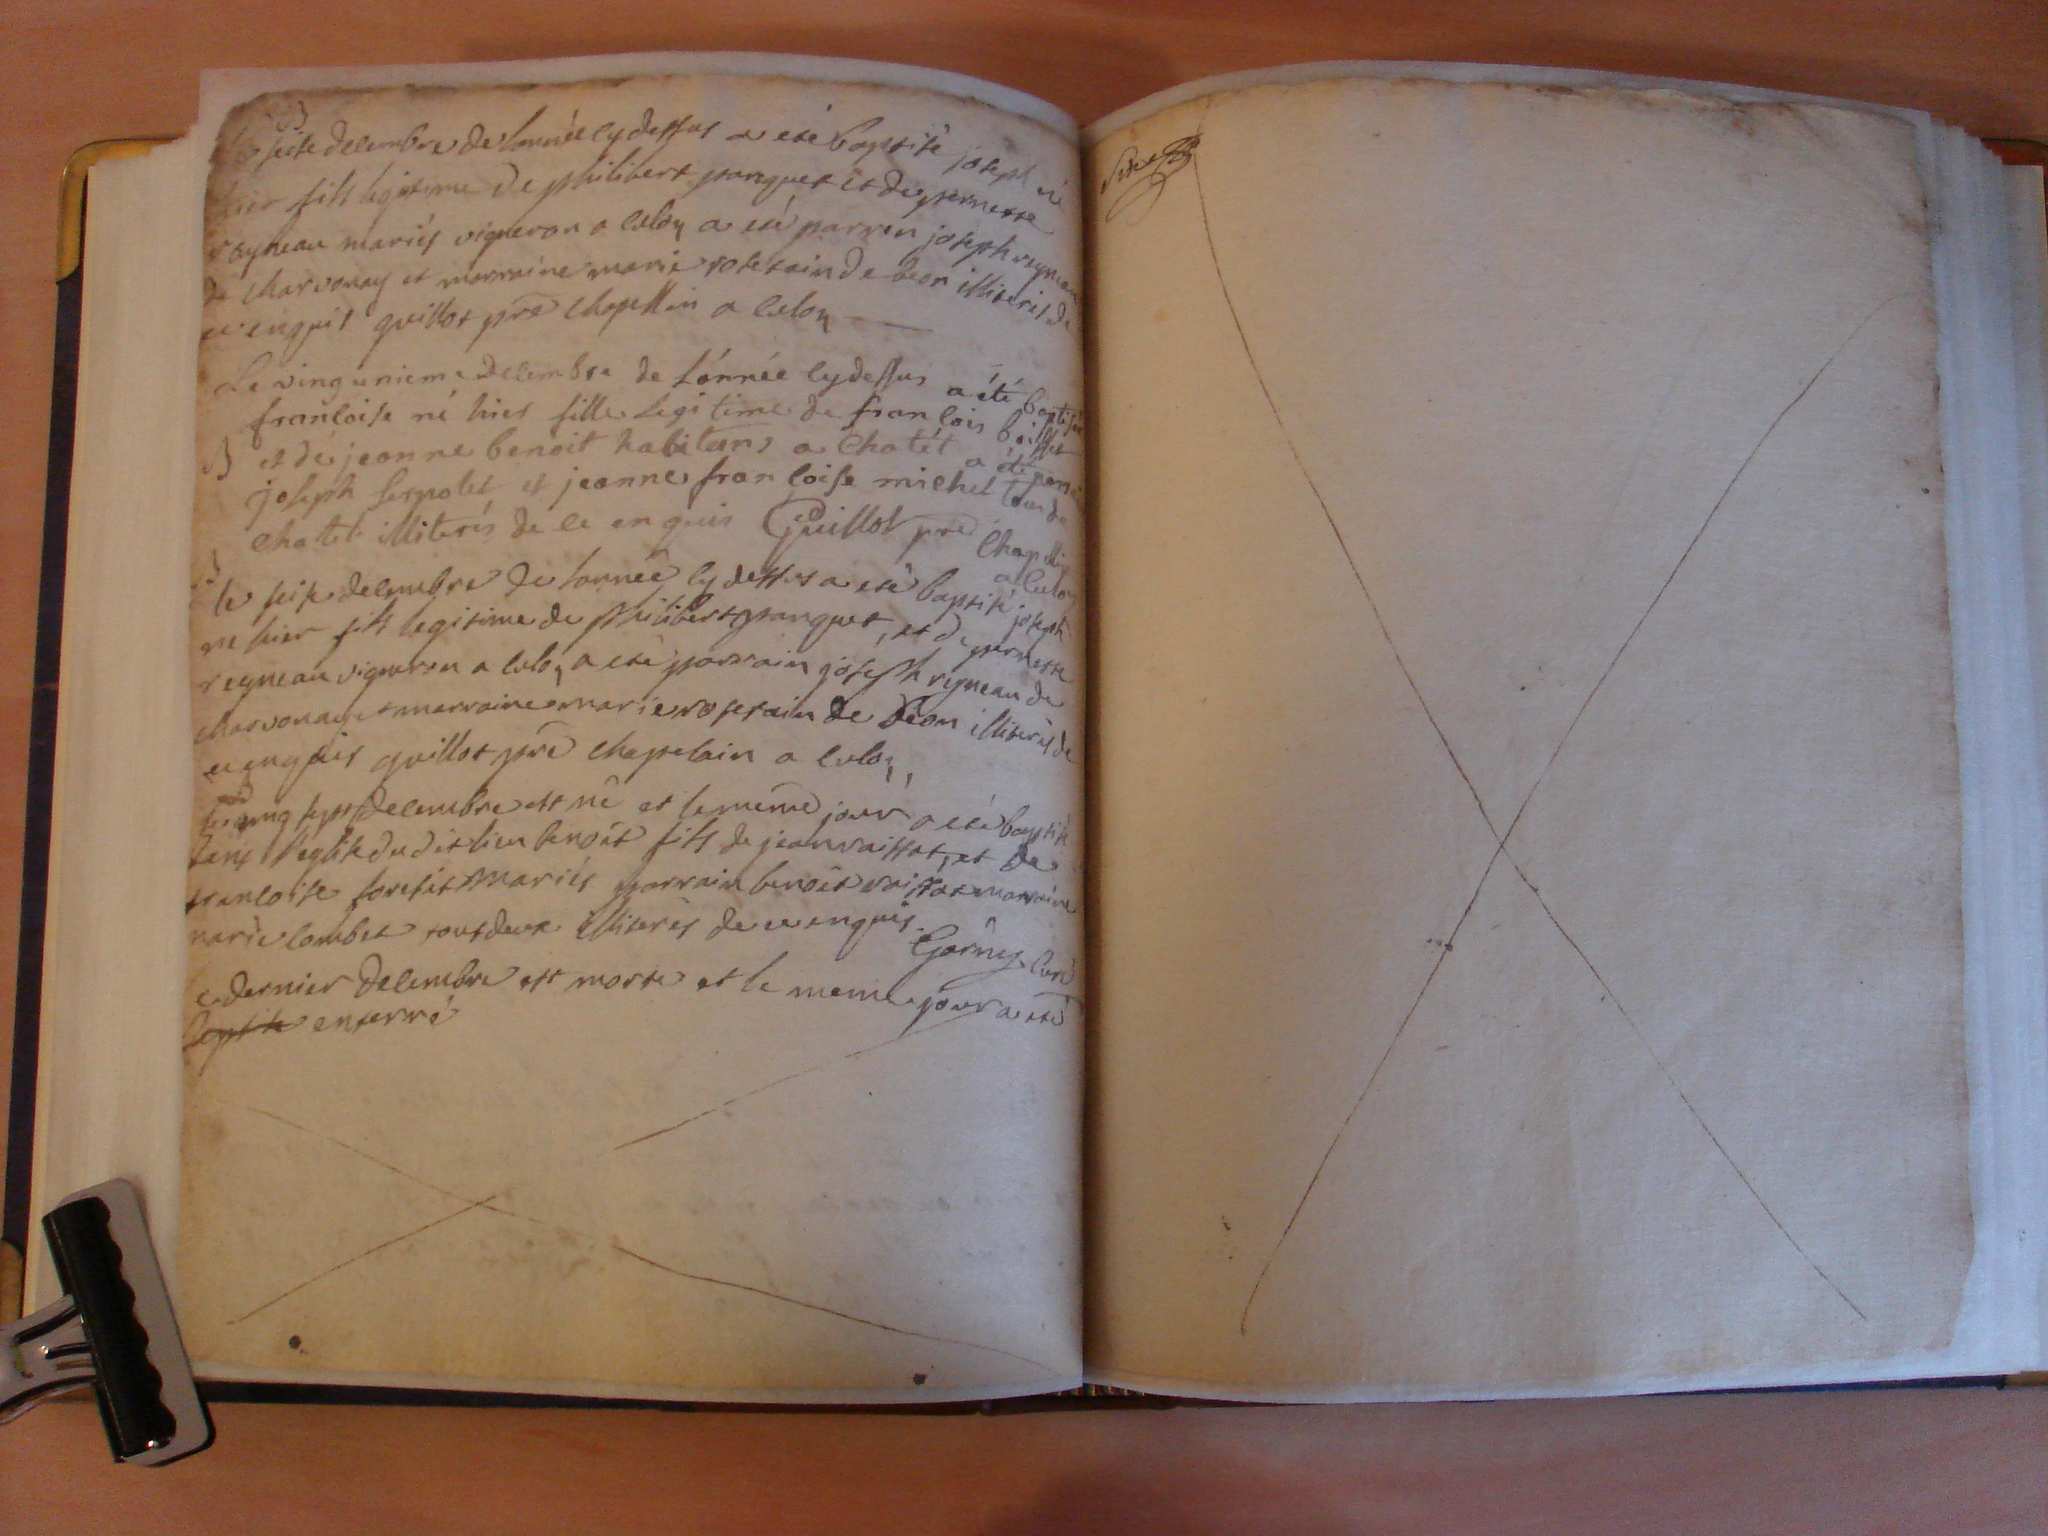 B
le seise decembre de lannée cy dessus a eté baptisé joseph né
hier fils legitime de philibert panguet et de pernette
reyneau mariés vigneron a culoz a eté parren joseph reyneau
de charvonay et marraine marie rose sain de beon illiteris de
ce enquis guillot pre chapellin a culoz
Le vingunieme decembre de l'année cy dessus a été baptisée
francoise né hier fille legitime de francois boisset
B et de jeanne benoit habitans a chatét a été parrain
joseph serpolet et jeanne francoise michel tous de
chatet illiterés de ce enquis Guillot pre Chapellin
a culoz
B
le seise decembre de lannée cy dessus a eté baptisé joseph
né hier fils legitime de philibert panguet, et de pernette
reyneau vigneron a culoz, a eté parrain joseph reyneau de
charvonay et marraine marie rose sain de Beon illiterés de
ce enquis guillot prê chapelain a culoz,
le vingt sept decembre est né et le même jour a eté baptisé
dans l'eglise dudit lieu benoit fils de jean vaissat, et de
francoise forestit mariés parrain benoit vaissat marraine
marie combet tous deux illiterés de ce enquis.
Gorney curé
le dernier decembre est morte et le meme jour a eté
baptisé enterré